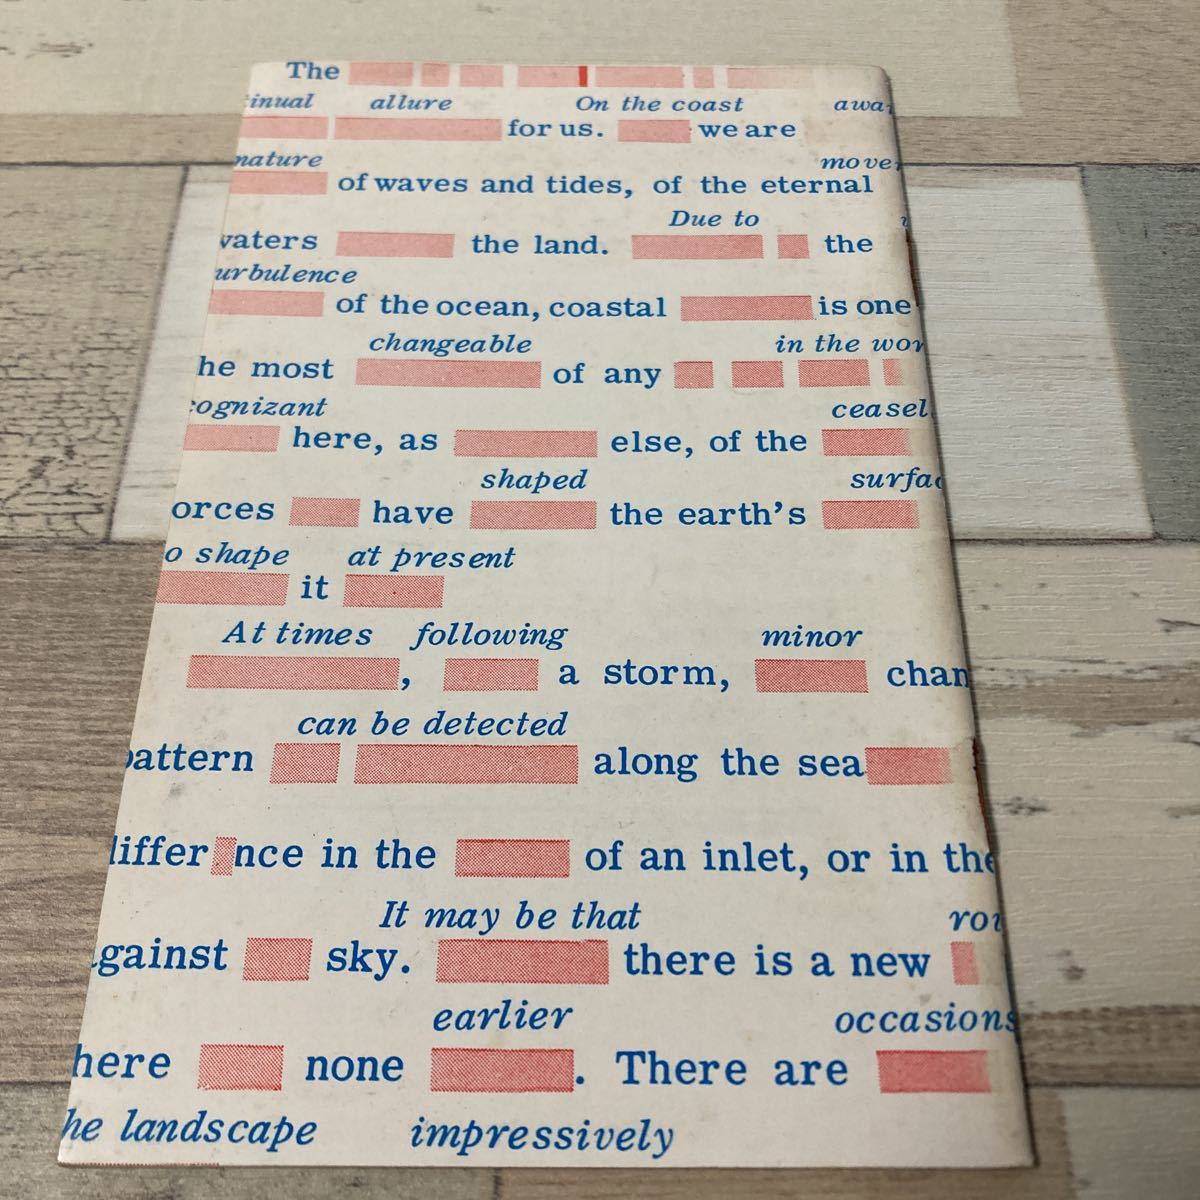 The
inual allure On the coast awa
for us. we are
nature move
of waves and tides, of the eternal
Due to
waters the land. the
urbulence
of the ocean, coastal is one
changeable in the wor
he most of any
ognizant ceasel
here, as else, of the
shaped surfac
orces have the earth's
o shape at present
it
At times following minor
, a storm, chan
can be detected
pattern along the sea
differ nce in the of an inlet, or in the
It may be that rou
gainst sky. there is a new
earlier occasions
here none . There are
he landscape impressively